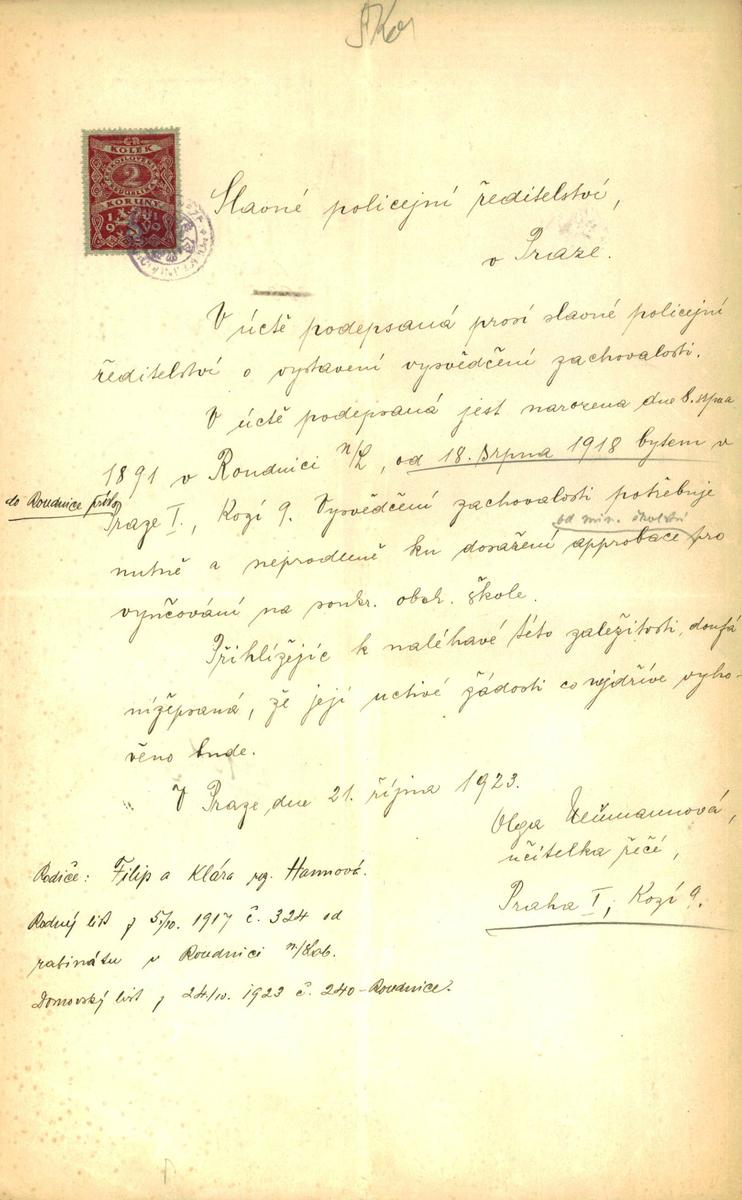 KOLEK
ČESKOSLOVENSKÁ
2
REPUBLIKA
KORUNY
19
Slavné policejní ředitelství,
v Praze.
V úctě podepsaná prosí slavné policejní
ředitelství o vystavení vysvědčení zachovalosti.
V úctě podepsaná jest narozena dne 8. srpna
1891 v Roudnici n/L, od 18. srpna 1918 bytem v
do Roudnice přísl.
Praze I., Kozí 9. Vysvědčení zachovalosti potřebuje
od min. školství
nutně a neprodleně ku dosažení approbace pro
vyučování na soukr. obch. škole.
Přihlížejíc k naléhavé této záležitosti, doufá
nížepsaná, že její uctivé žádosti co nejdříve vyho-
věno bude.
V Praze, dne 21. října 1923.
Olga Neumannová,
učitelka řečí,
Praha I, Kozí 9.
Rodiče: Filip a Klára roz. Hannová.
Rodný list z 5/10. 1917 č. 324 od
rabinátu v Roudnici n./Lab.
Domovský list z 24/10. 1923 č. 240 - Roudnice.